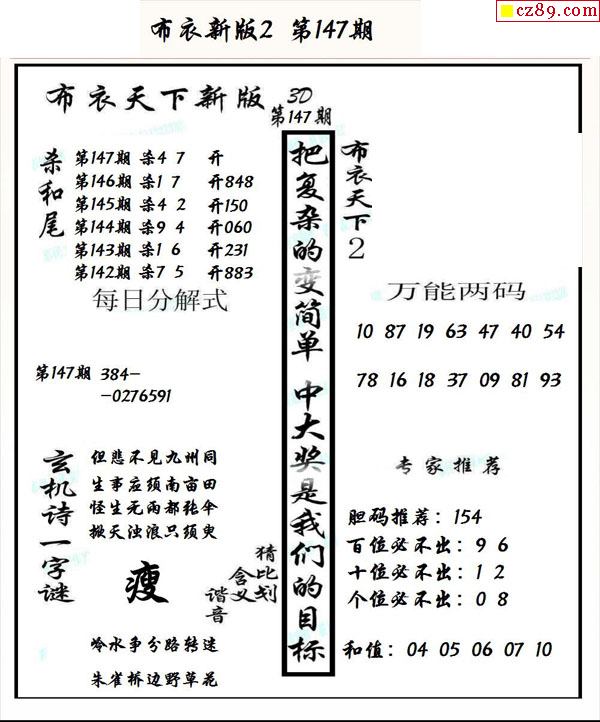 cz89.com
布衣新版2 第147期
布衣天下新版 3D
第147期
杀和尾
第147期 杀4 7 开
第146期 杀1 7 开848
第145期 杀4 2 开150
第144期 杀9 4 开060
第143期 杀1 6 开231
第142期 杀7 5 开883
每日分解式
第147期 384-
-0276591
玄机诗一字谜
但悲不见九州同
生事应须南亩田
怪生无雨都张伞
掀天浊浪只须臾
瘦
猜比划
含义
谐音
岭水争分路转迷
朱雀桥边野草花
把复杂的变简单 中大奖是我们的目标
布衣天下2
万能两码
10 87 19 63 47 40 54
78 16 18 37 09 81 93
专家推荐
胆码推荐：154
百位必不出：9 6
十位必不出：1 2
个位必不出：0 8
和值：04 05 06 07 10